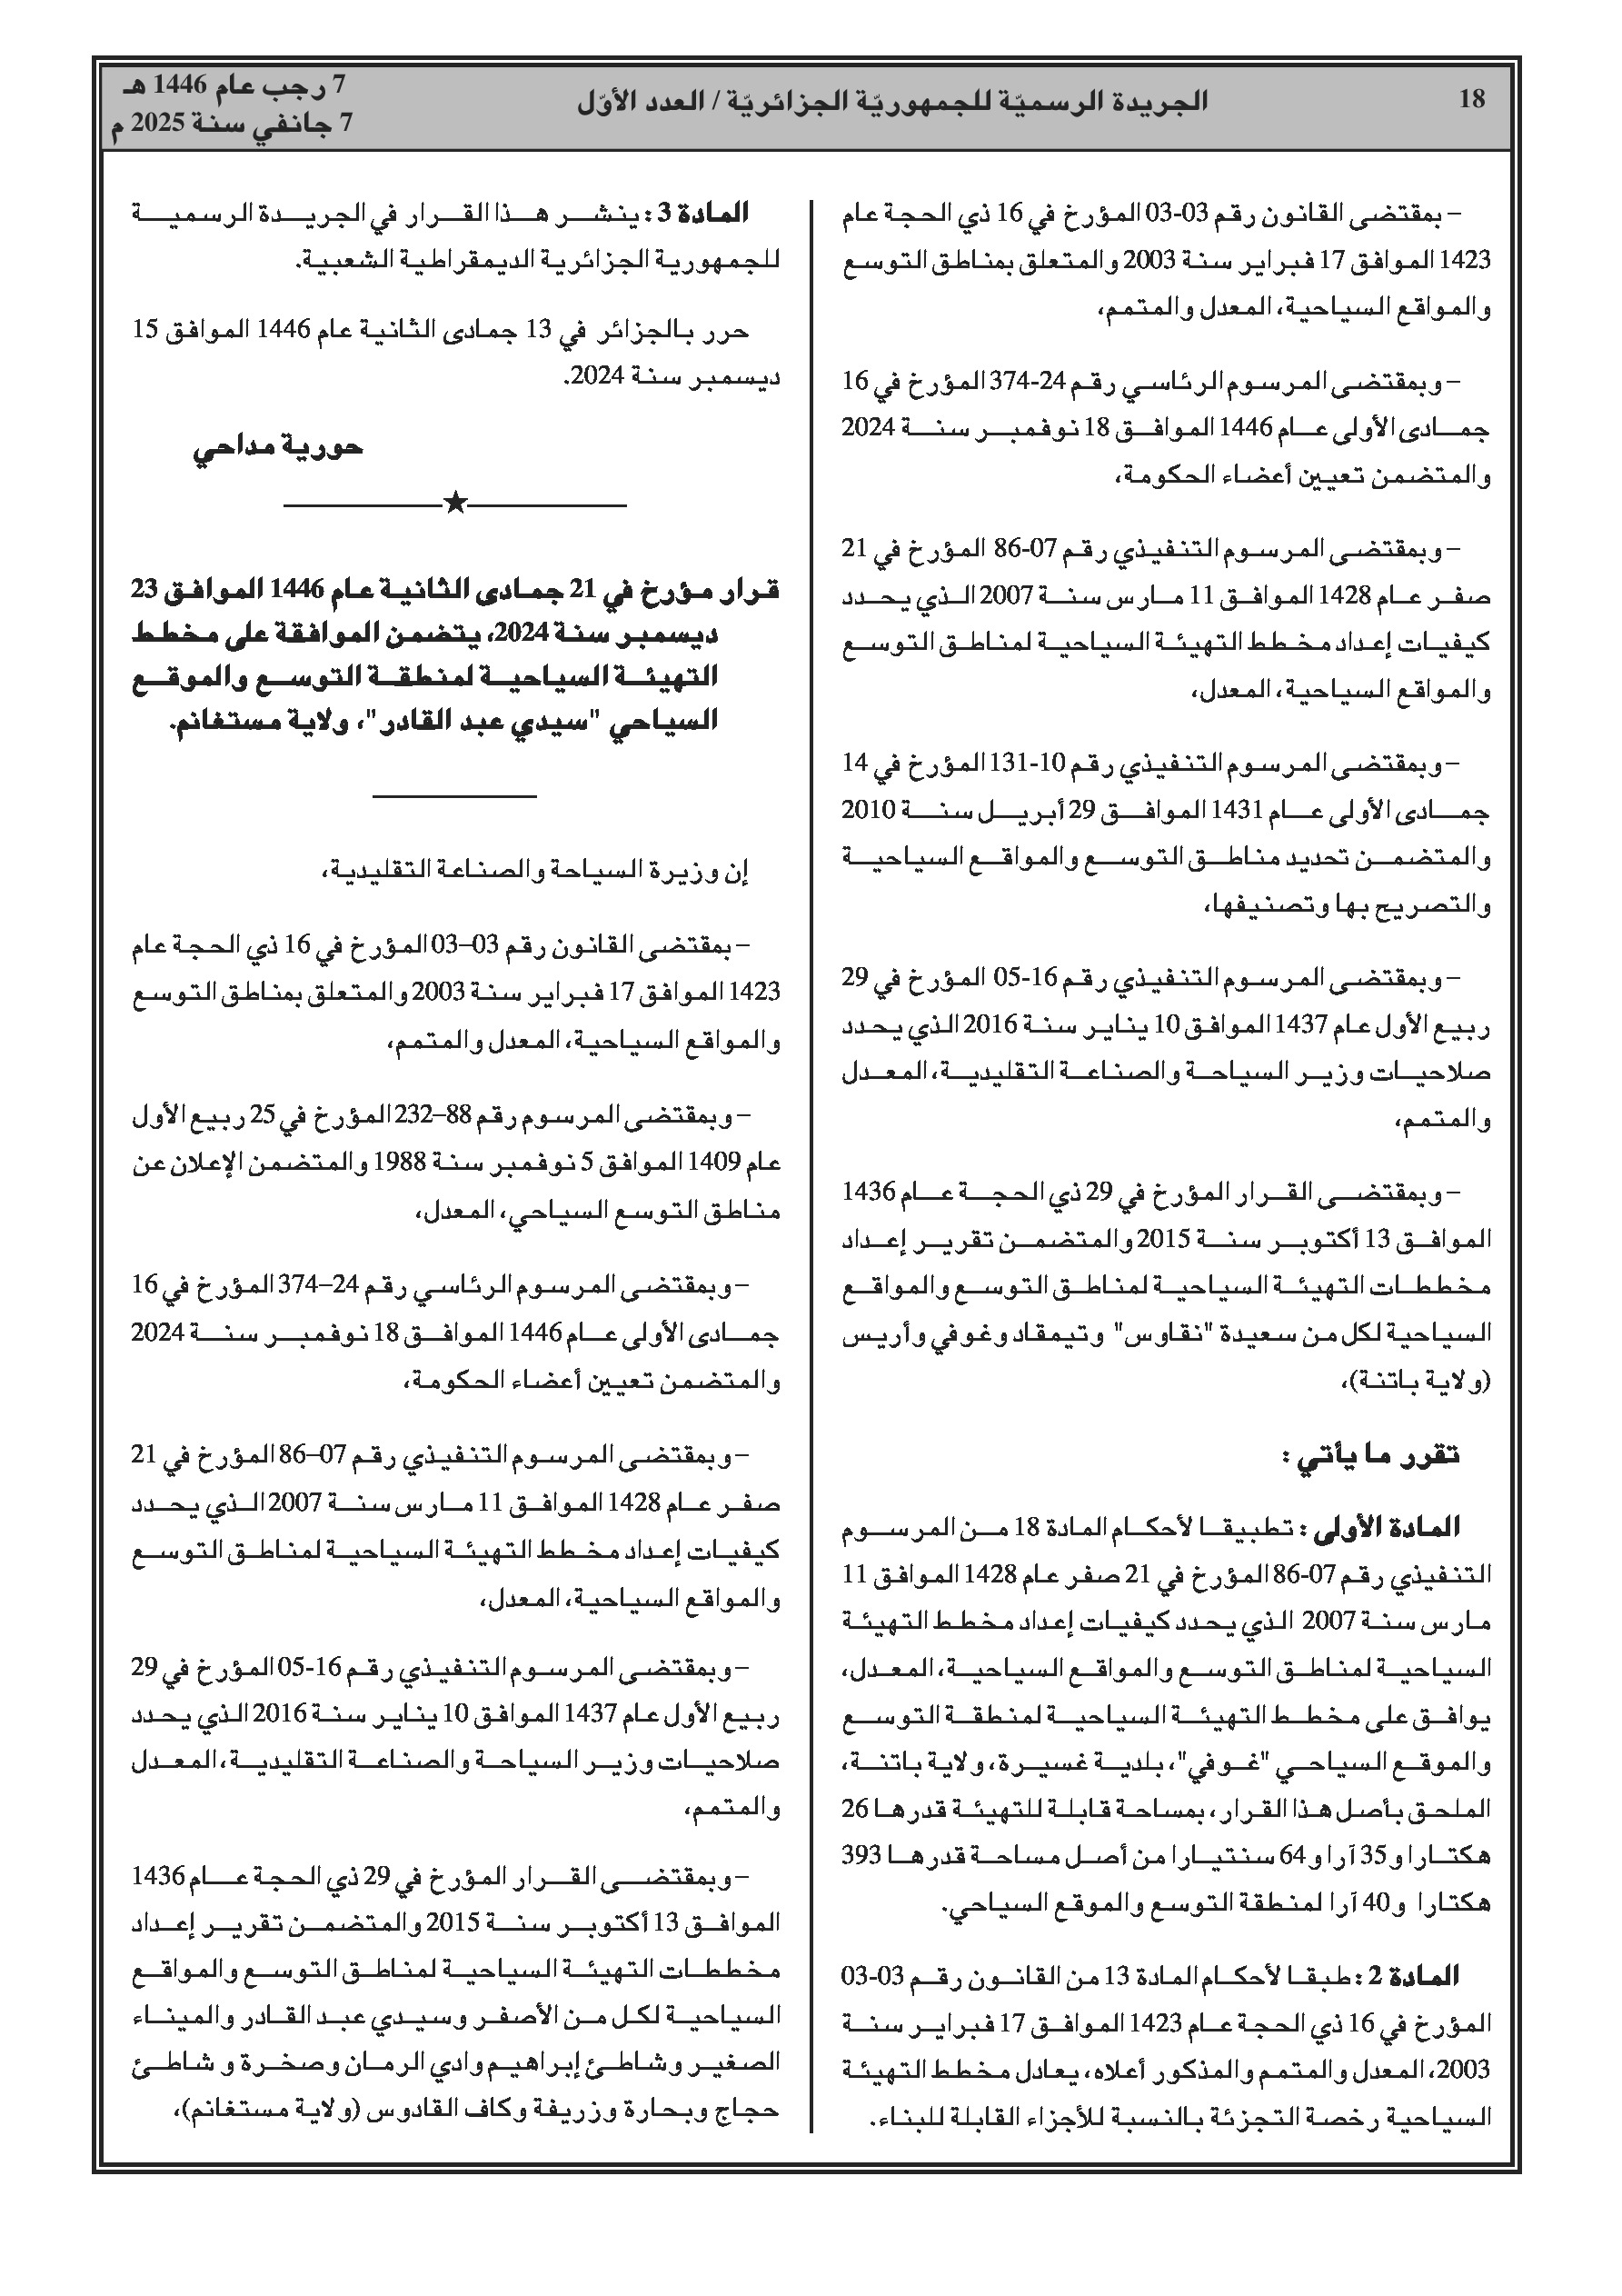 18
الجريدة الرسميّة للجمهوريّة الجزائريّة / العدد الأوّل
7 رجب عام 1446 هـ
7 جانفي سنة 2025 م
– بمقتضى القانون رقم 03-03 المؤرخ في 16 ذي الحجة عام
1423 الموافق 17 فبراير سنة 2003 والمتعلق بمناطق التوسع
والمواقع السياحية، المعدل والمتمم،
– وبمقتضى المرسوم الرئاسي رقم 24-374 المؤرخ في 16
جمادى الأولى عام 1446 الموافق 18 نوفمبر سنة 2024
والمتضمن تعيين أعضاء الحكومة،
– وبمقتضى المرسوم التنفيذي رقم 07-86 المؤرخ في 21
صفر عام 1428 الموافق 11 مارس سنة 2007 الذي يحدد
كيفيات إعداد مخطط التهيئة السياحية لمناطق التوسع
والمواقع السياحية، المعدل،
– وبمقتضى المرسوم التنفيذي رقم 10-131 المؤرخ في 14
جمادى الأولى عام 1431 الموافق 29 أبريل سنة 2010
والمتضمن تحديد مناطق التوسع والمواقع السياحية
والتصريح بها وتصنيفها،
– وبمقتضى المرسوم التنفيذي رقم 16-05 المؤرخ في 29
ربيع الأول عام 1437 الموافق 10 يناير سنة 2016 الذي يحدد
صلاحيات وزير السياحة والصناعة التقليدية، المعدل
والمتمم،
– وبمقتضى القرار المؤرخ في 29 ذي الحجة عام 1436
الموافق 13 أكتوبر سنة 2015 والمتضمن تقرير إعداد
مخططات التهيئة السياحية لمناطق التوسع والمواقع
السياحية لكل من سعيدة "نقاوس" وتيمقاد وغوفي وأريس
(ولاية باتنة)،
تقرر ما يأتي :
المادة الأولى : تطبيقا لأحكام المادة 18 من المرسوم
التنفيذي رقم 07-86 المؤرخ في 21 صفر عام 1428 الموافق 11
مارس سنة 2007 الذي يحدد كيفيات إعداد مخطط التهيئة
السياحية لمناطق التوسع والمواقع السياحية، المعدل،
يوافق على مخطط التهيئة السياحية لمنطقة التوسع
والموقع السياحي "غوفي"، بلدية غسيرة، ولاية باتنة،
الملحق بأصل هذا القرار، بمساحة قابلة للتهيئة قدرها 26
هكتارا و35 آرا و64 سنتيارا من أصل مساحة قدرها 393
هكتارا و40 آرا لمنطقة التوسع والموقع السياحي.
المادة 2 : طبقا لأحكام المادة 13 من القانون رقم 03-03
المؤرخ في 16 ذي الحجة عام 1423 الموافق 17 فبراير سنة
2003، المعدل والمتمم والمذكور أعلاه، يعادل مخطط التهيئة
السياحية رخصة التجزئة بالنسبة للأجزاء القابلة للبناء.
المادة 3 : ينشر هذا القرار في الجريدة الرسمية
للجمهورية الجزائرية الديمقراطية الشعبية.
حرر بالجزائر في 13 جمادى الثانية عام 1446 الموافق 15
ديسمبر سنة 2024.
حورية مداحي
قرار مؤرخ في 21 جمادى الثانية عام 1446 الموافق 23
ديسمبر سنة 2024، يتضمن الموافقة على مخطط
التهيئة السياحية لمنطقة التوسع والموقع
السياحي "سيدي عبد القادر"، ولاية مستغانم.
إن وزيرة السياحة والصناعة التقليدية،
– بمقتضى القانون رقم 03–03 المؤرخ في 16 ذي الحجة عام
1423 الموافق 17 فبراير سنة 2003 والمتعلق بمناطق التوسع
والمواقع السياحية، المعدل والمتمم،
– وبمقتضى المرسوم رقم 88–232 المؤرخ في 25 ربيع الأول
عام 1409 الموافق 5 نوفمبر سنة 1988 والمتضمن الإعلان عن
مناطق التوسع السياحي، المعدل،
– وبمقتضى المرسوم الرئاسي رقم 24–374 المؤرخ في 16
جمادى الأولى عام 1446 الموافق 18 نوفمبر سنة 2024
والمتضمن تعيين أعضاء الحكومة،
– وبمقتضى المرسوم التنفيذي رقم 07–86 المؤرخ في 21
صفر عام 1428 الموافق 11 مارس سنة 2007 الذي يحدد
كيفيات إعداد مخطط التهيئة السياحية لمناطق التوسع
والمواقع السياحية، المعدل،
– وبمقتضى المرسوم التنفيذي رقم 16-05 المؤرخ في 29
ربيع الأول عام 1437 الموافق 10 يناير سنة 2016 الذي يحدد
صلاحيات وزير السياحة والصناعة التقليدية، المعدل
والمتمم،
– وبمقتضى القرار المؤرخ في 29 ذي الحجة عام 1436
الموافق 13 أكتوبر سنة 2015 والمتضمن تقرير إعداد
مخططات التهيئة السياحية لمناطق التوسع والمواقع
السياحية لكل من الأصفر وسيدي عبد القادر والميناء
الصغير وشاطئ إبراهيم وادي الرمان وصخرة و شاطئ
حجاج وبحارة وزريفة وكاف القادوس (ولاية مستغانم)،